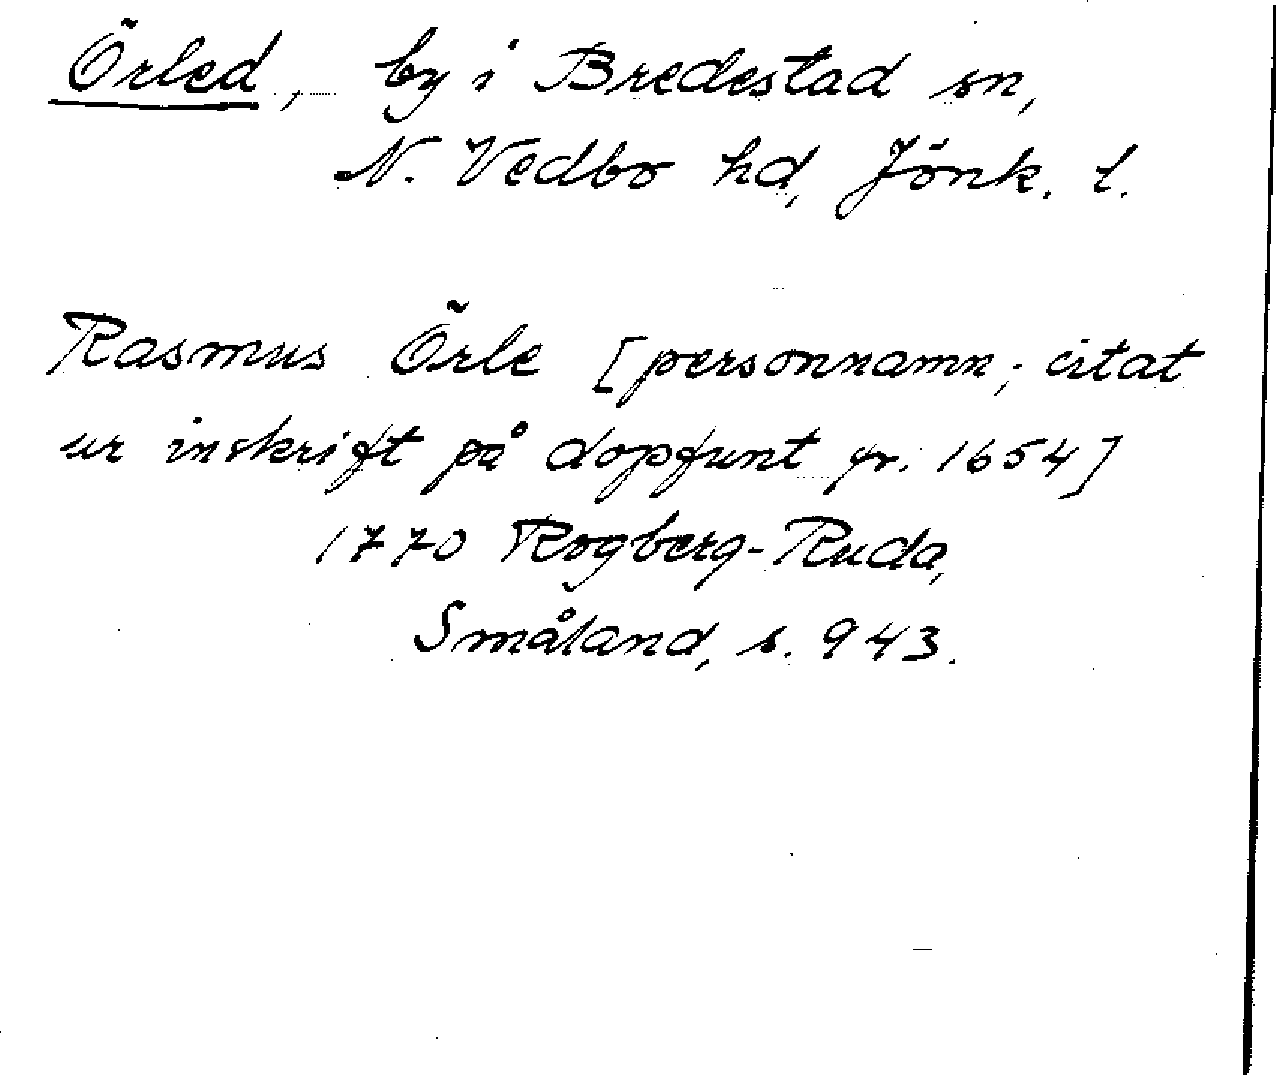 Örled, by i Bredestad sn,
N. Vedbo hd, Jönk. l.
Rasmus Örle [personnamn; citat
ur inskrift på dopfunt fr. 1654]
1770 Rogberg-Ruda,
Småland, s. 943.